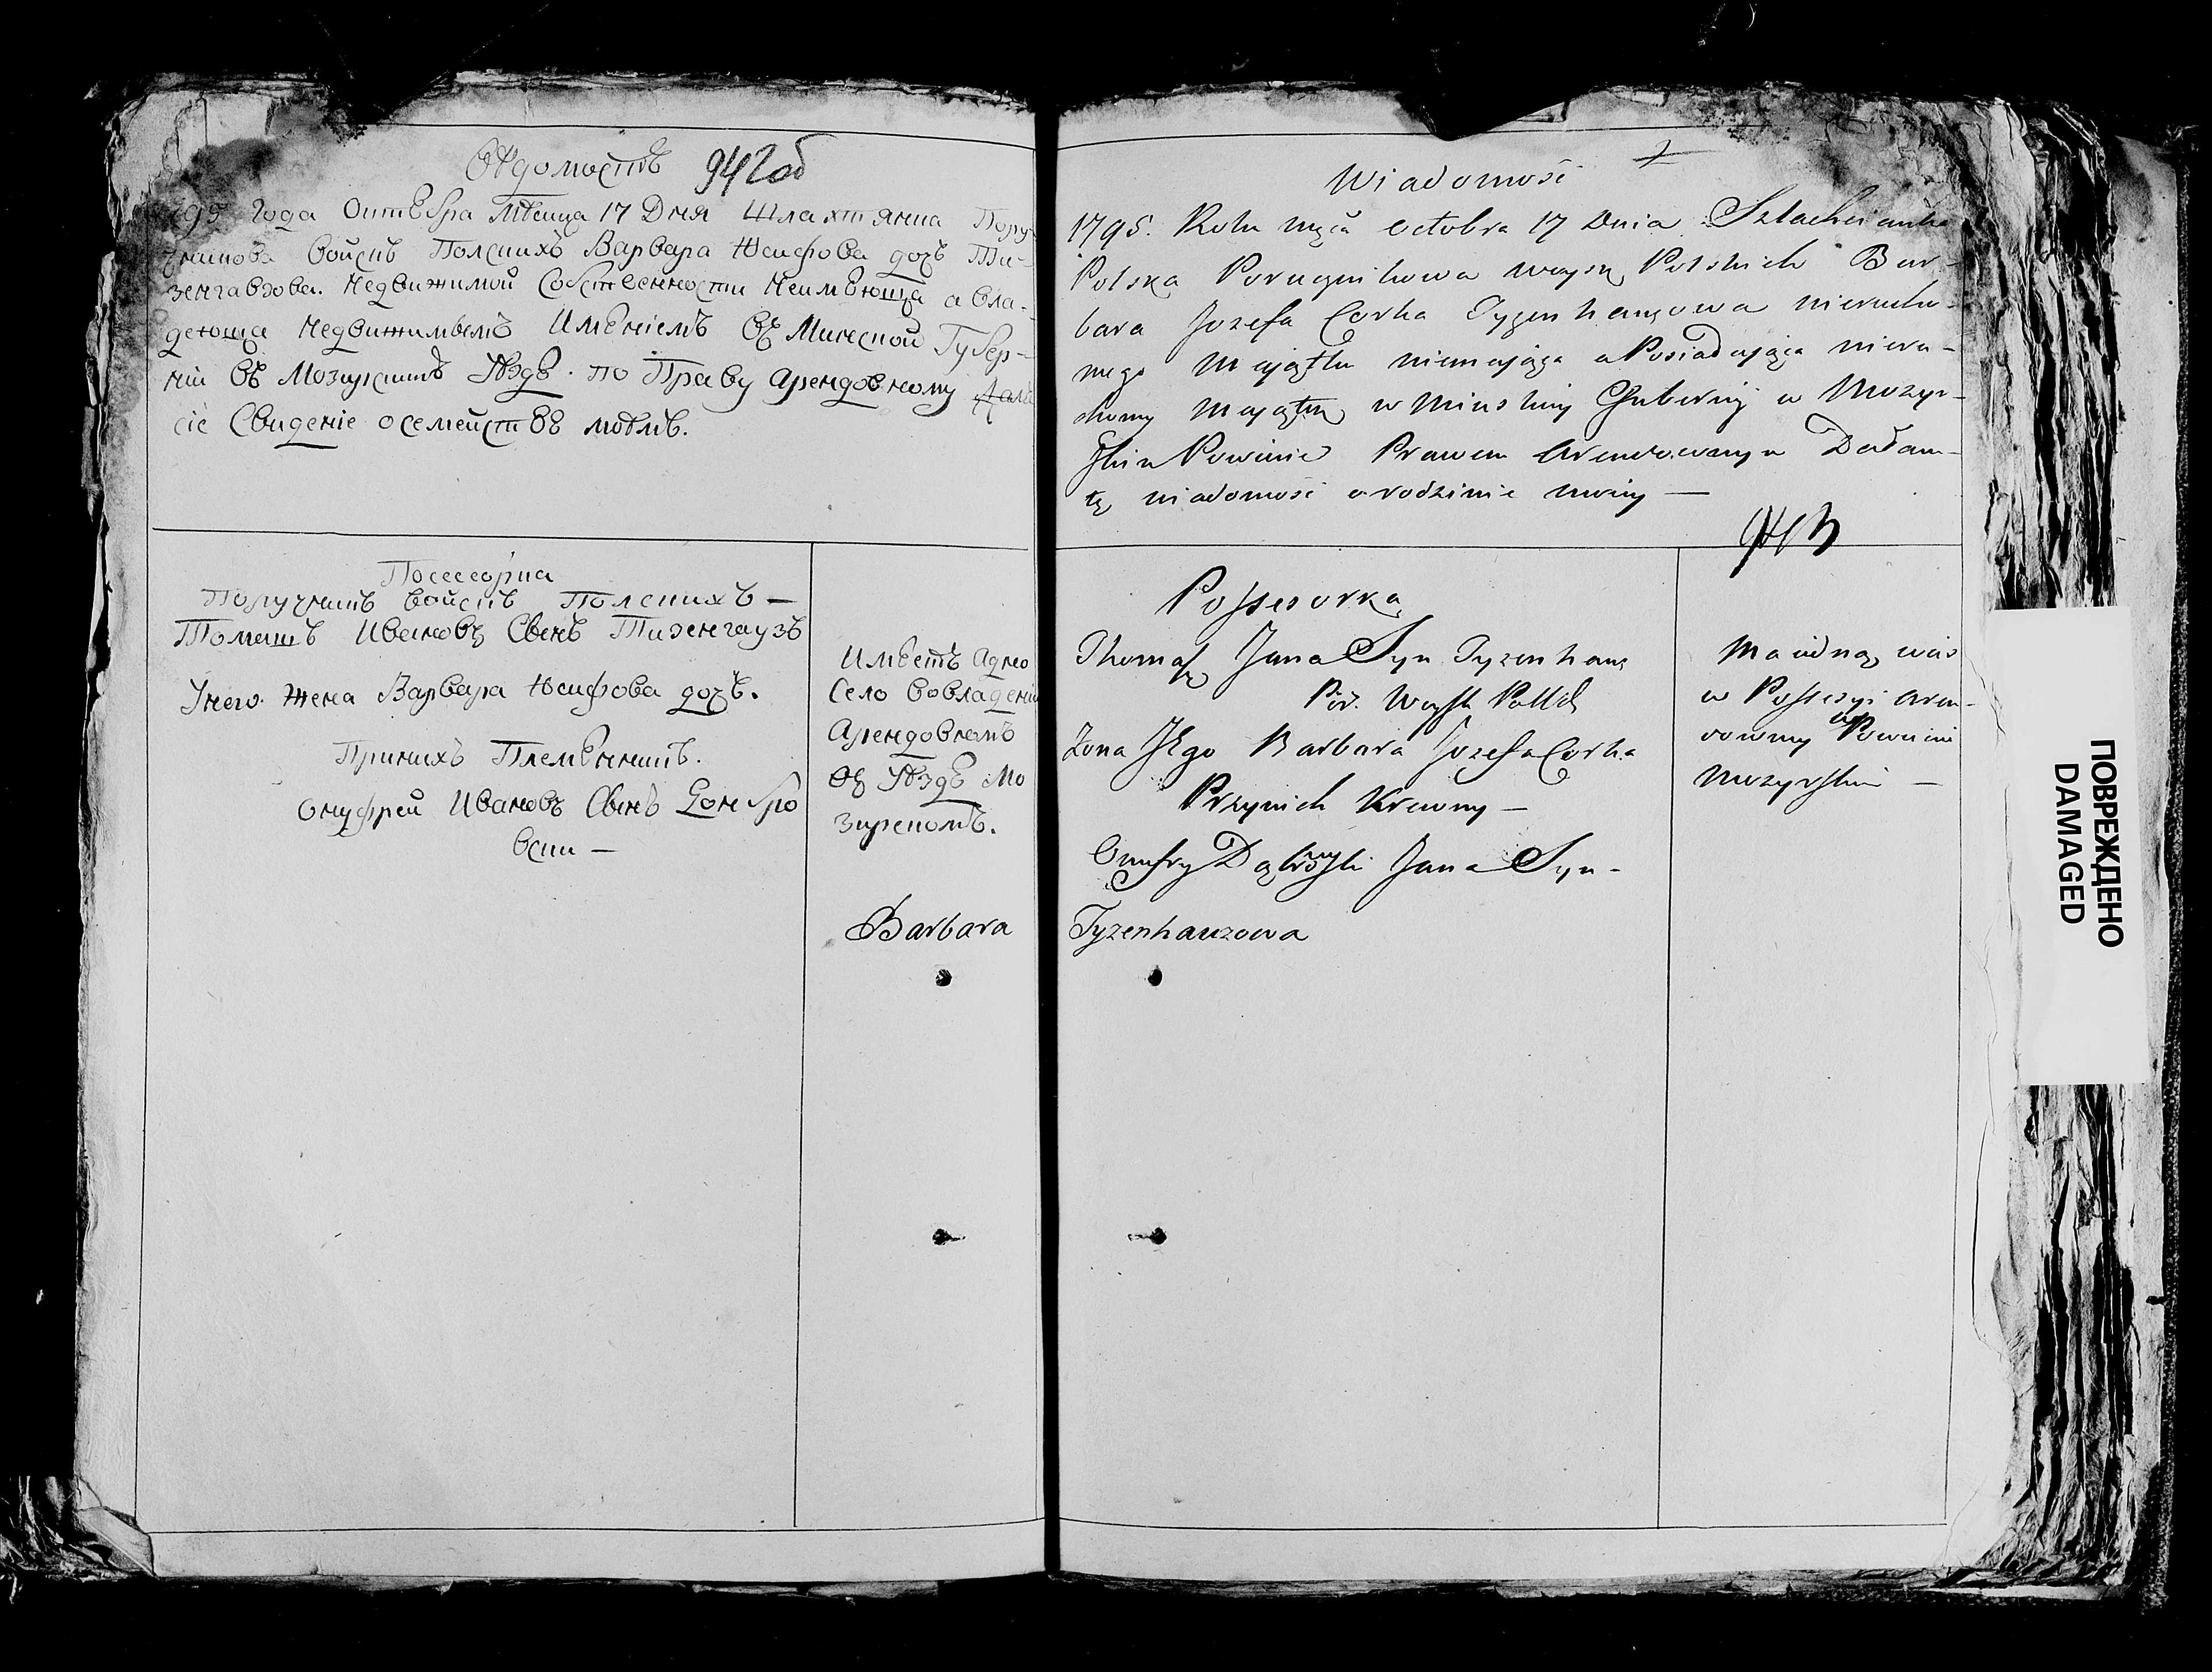 Вѣдомость 942 об
1795 года Октебра Мѣсяца 17 Дня Шляхтянка Пору-
чникова войскъ Полскихъ Варвара Юсифова дочь Ти-
зенгавзова. Недвижимой Собственности Неимѣюща а вла-
деюща Недвижимымъ Имѣніемъ въ Минской Губер-
ніи въ Мозырскимъ Уѣздѣ. по Праву Арендовному Дала
сіе Сведеніе о семействѣ моѣмъ.
Посессорка
Поручникъ войскъ Полскихъ —
Томашъ Ивановъ Сынъ Тизенгаузъ
Унего Жена Варвара Юсифова дочь.
Принихъ Племѣнникъ.
Онуфрей Ивановъ Сынъ Домбро
вски —
Имѣетъ Адно
Село вовладении
Арендовномъ
въ Уѣздѣ Мо
зирскомъ.
Wiadomość
1795. Roku mca octobra 17 Dnia Szlachcianka
Polska Porucznikowa woysk Polskich Bar-
bara Jozefa Corka Tyzenhauzowa nierucho-
mego Majątku niemająca a Posiadająca nieru-
chomy Majątek w Minskiey Guberniy w Mozyr-
skim Powiecie Prawem Arendownym Dałam
tę wiadomość o rodzinie moiey —
943
Possesorka
Thomasz Jana Syn Tyzenhauz
Por. Woysk Polsk
Zona Jego Barbara Jozefa Corka
Przynich Krewny —
Onufry Dąbrowski Jana Syn -
Ma iedną wieś
w Possesyi Aren-
downey w Powiecie
Mozyrskim —
Barbara Tyzenhauzowa
ПОВРЕЖДЕНО
DAMAGED